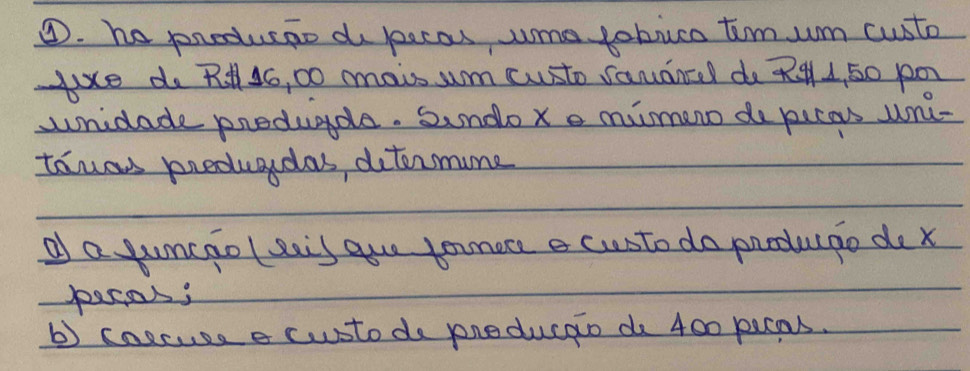 ①. Na produção de peças, uma fabrica tem um custo
fixo de R$ 16,00 mais um custo variável de R$ 1,50 por
unidade produzida. Sendo x o número de peças uni-
tárias produzidas, determine
a) a função (lei) que fornece o custo da produção de x
peças;
b) calcule o custo de produção de 400 peças.